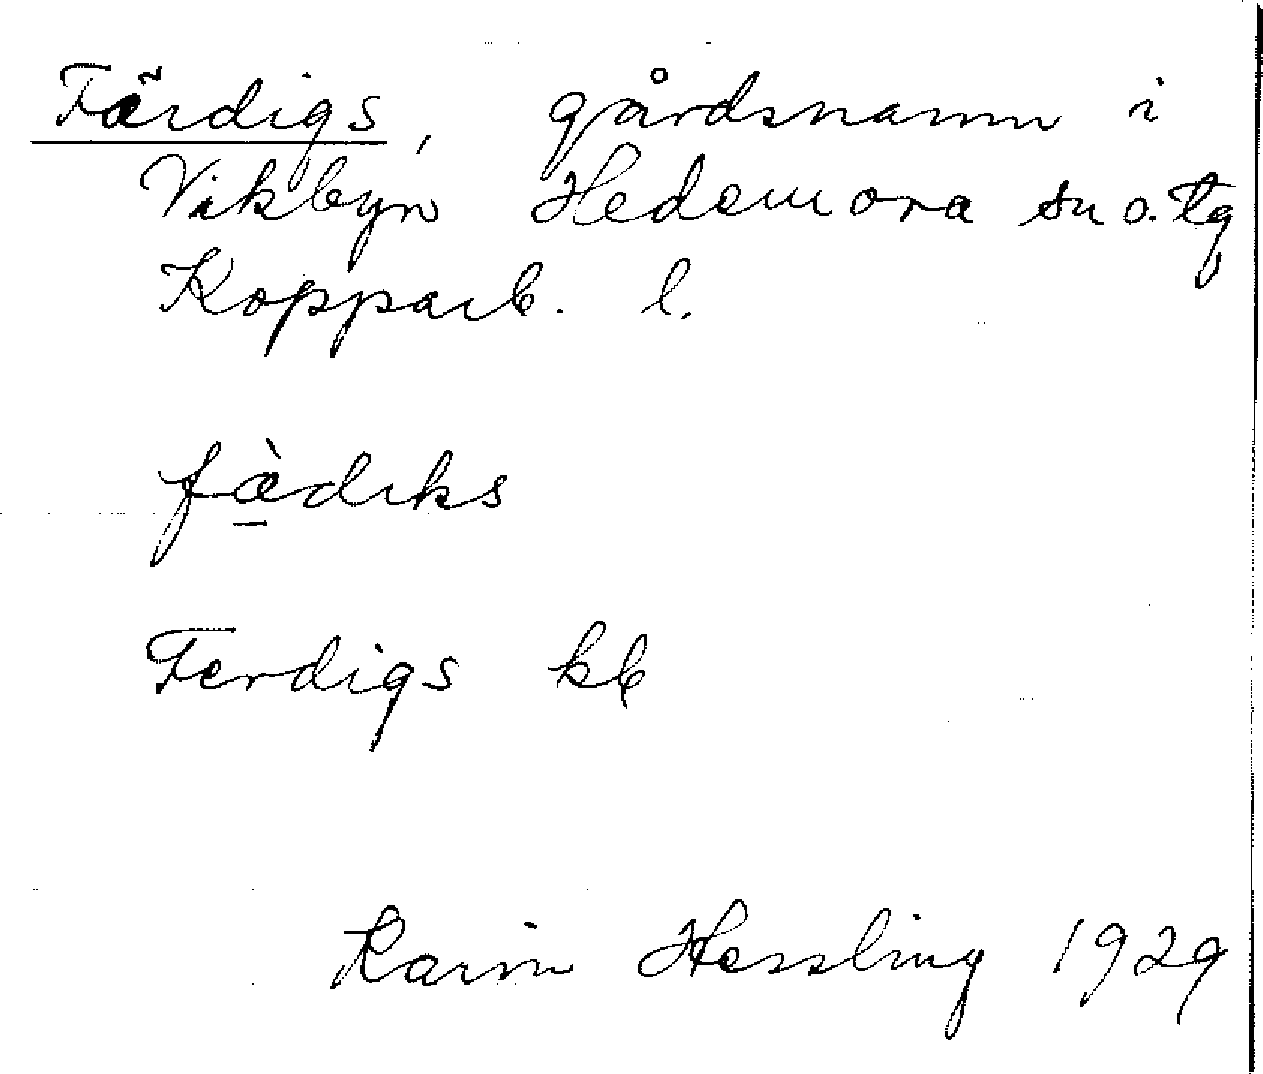 Färdigs, gårdsnamn i
Vikbyn Hedemora sn o. tg
Kopparb. l.
fä̀dıks
Ferdigs kb
Karin Hessling 1929